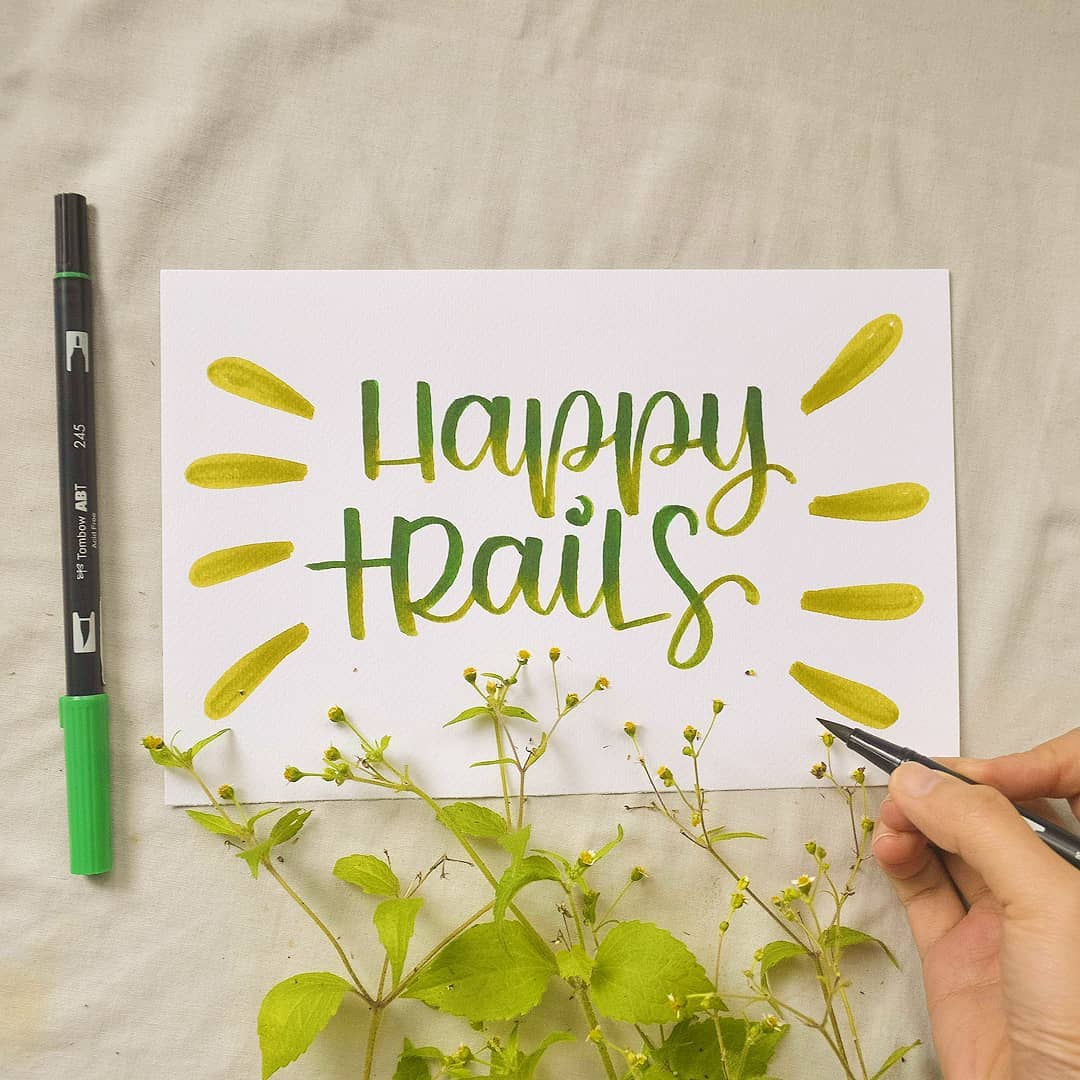 Happy
tRaiLs
245
Tombow ABT
Acid Free